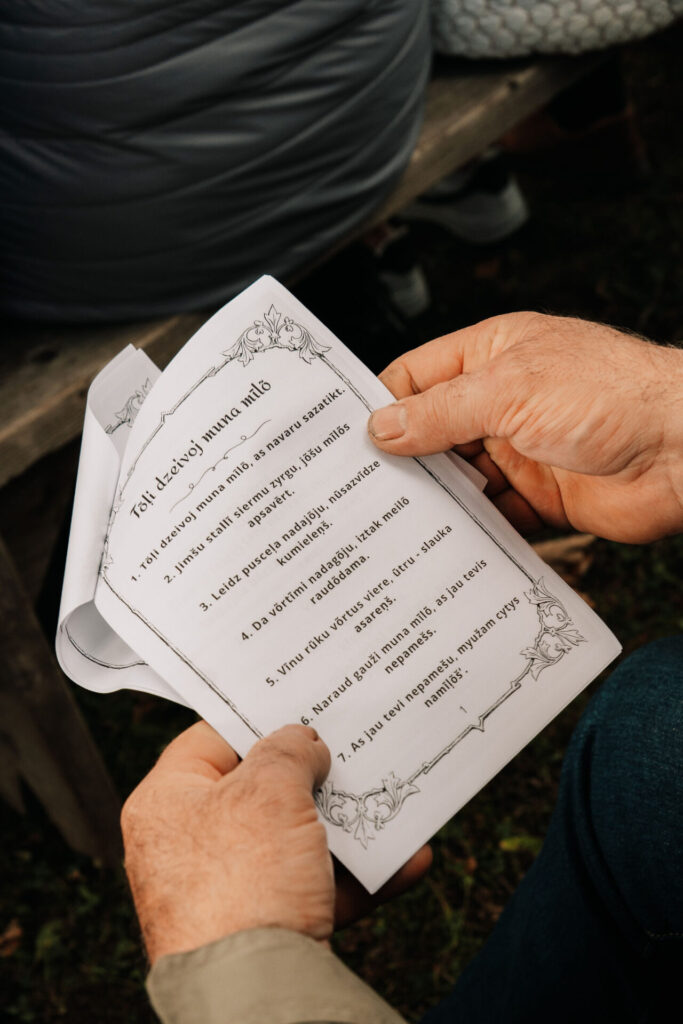 Tōli dzeivoj muna mīlō
1. Tōli dzeivoj muna mīlō, as navaru sazatikt.
2. Jimšu stallī siermu zyrgu, jōšu mīlōs
apsavērt.
3. Leidz pusceļa nadajōju, nūsazvīdze
kumieleņš.
4. Da vōrtimi nadagōju, iztak meilō
raudōdama.
5. Vīnu rūku vōrtus viere, ūtru - slauka
asareņš.
6. Naraud gauži muna mīlō, as jau tevis
nepamešs.
7. As jau tevi nepamešu, myužam cytys
namīļōš'.
1